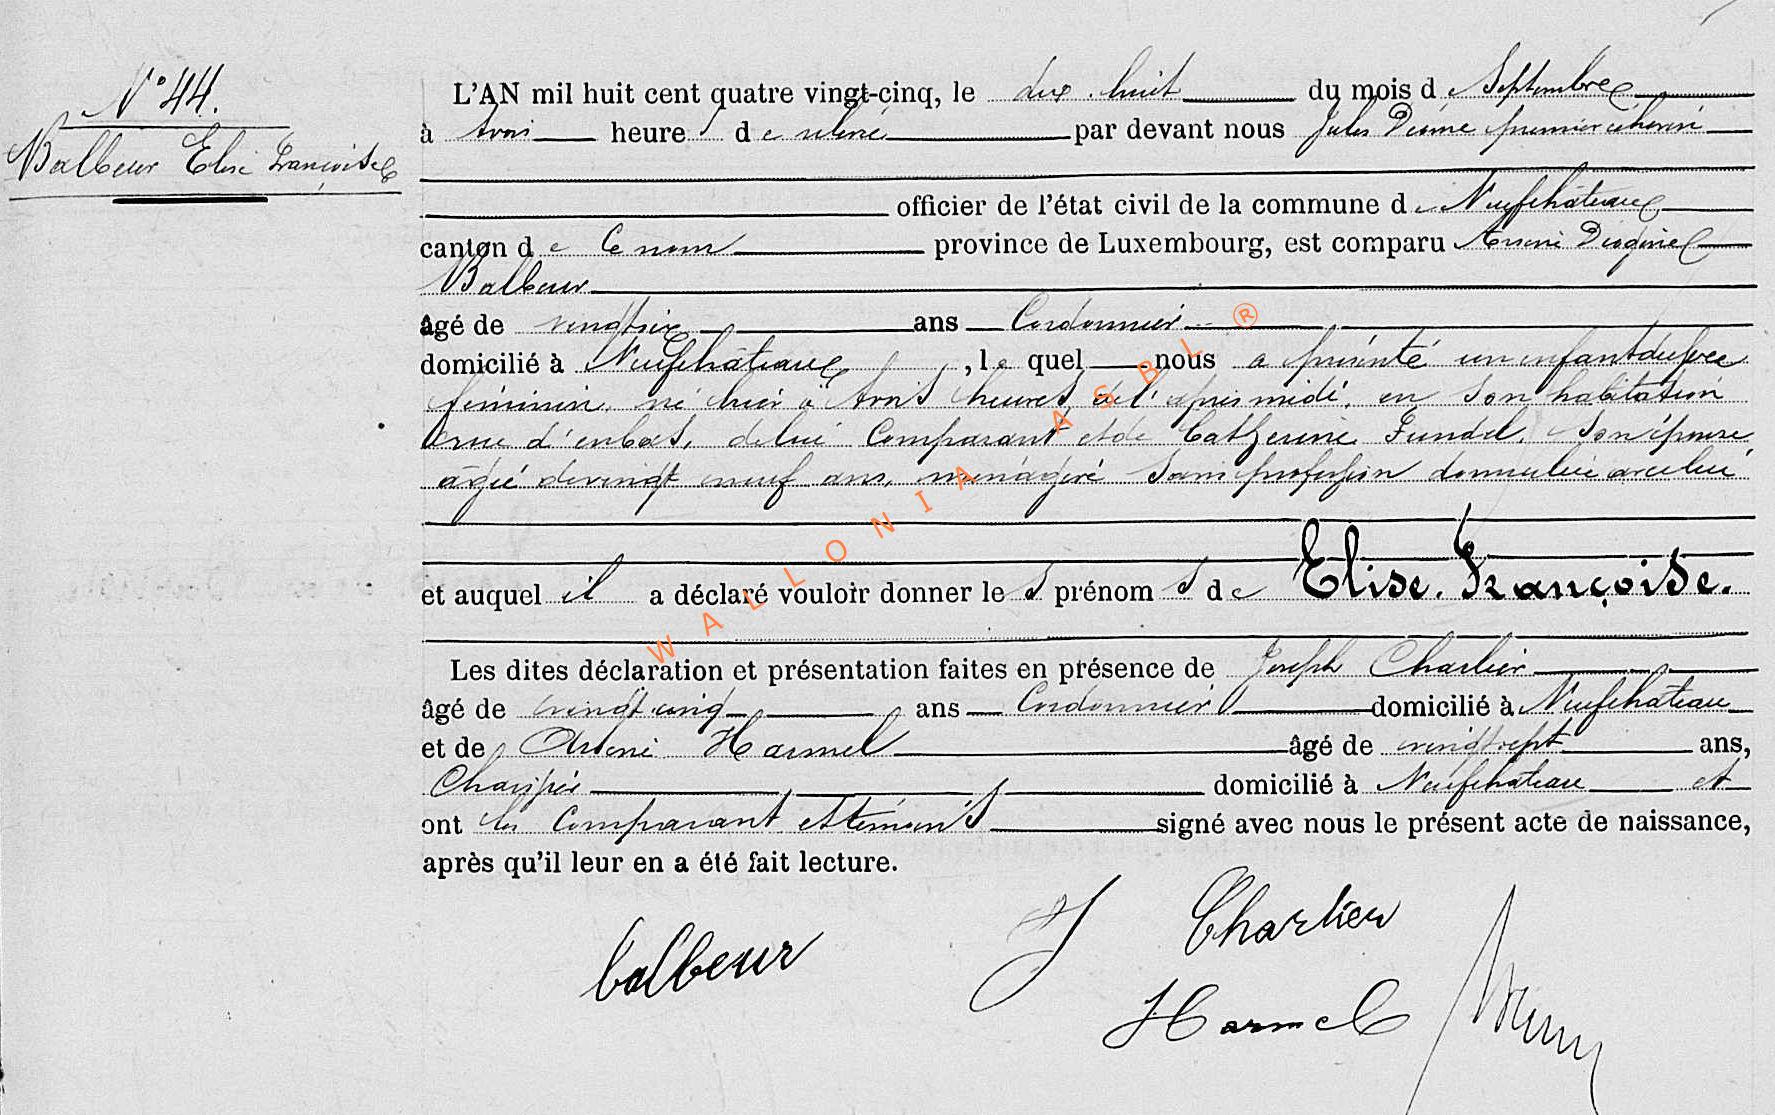 N° 44.
Balbeur Elise Françoise
L'AN mil huit cent quatre vingt-cinq, le dix huit du mois de Septembre
à trois heures de relevé par devant nous Jules premier échevin
officier de l'état civil de la commune de Neufchâteau
canton de ce nom province de Luxembourg, est comparu
Balbeur
âgé de vingtsix ans Cordonnier
domicilié à Neufchâteau, lequel nous a présenté un enfant du sexe
féminin, né hier à trois heures de l'après midi, en son habitation
rue d'enbas, de lui Comparant et de Catherine Fundel, son épouse
âgée de vingt neuf ans, ménagère sans profession domiciliée avec lui
et auquel il a déclaré vouloir donner les prénoms de Elise. Françoise.
Les dites déclaration et présentation faites en présence de Joseph Charlier
âgé de vingt cinq ans Cordonnier domicilié à Neufchâteau
et de Arsène Harmel âgé de vingtsept ans,
domicilié à Neufchâteau et
ont les Comparant et témoins signé avec nous le présent acte de naissance,
après qu'il leur en a été fait lecture.
Balbeur
J Charlier
Harmel
WALLONIA ASBL ®